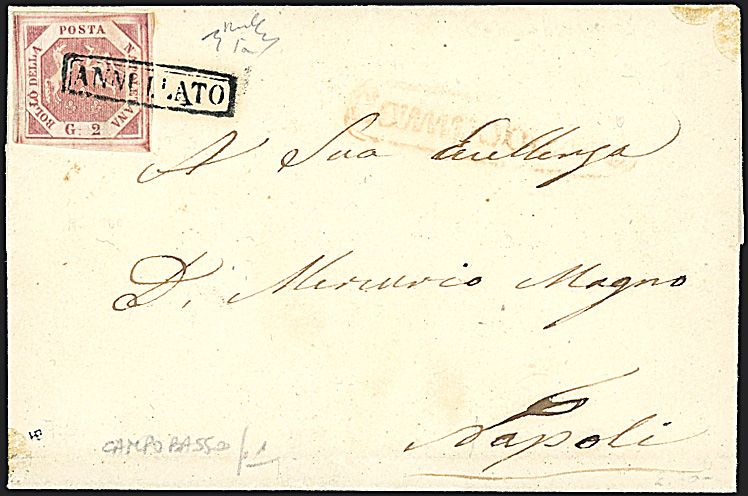 POSTA
BOLLO DELLA
NAPOLETANA
G. 2
ANNULLATO
A Sua Eccellenza
D. Mercurio Magno
Napoli
CAMPOBASSO